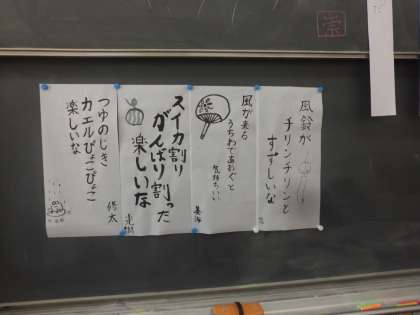 風鈴が
チリンチリンと
すずしいな
風が来る
うちわであおぐと
気持ちいい
スイカ割り
がんばり割った
楽しいな
つゆのじき
カエルぴょこぴょこ
楽しいな
修太